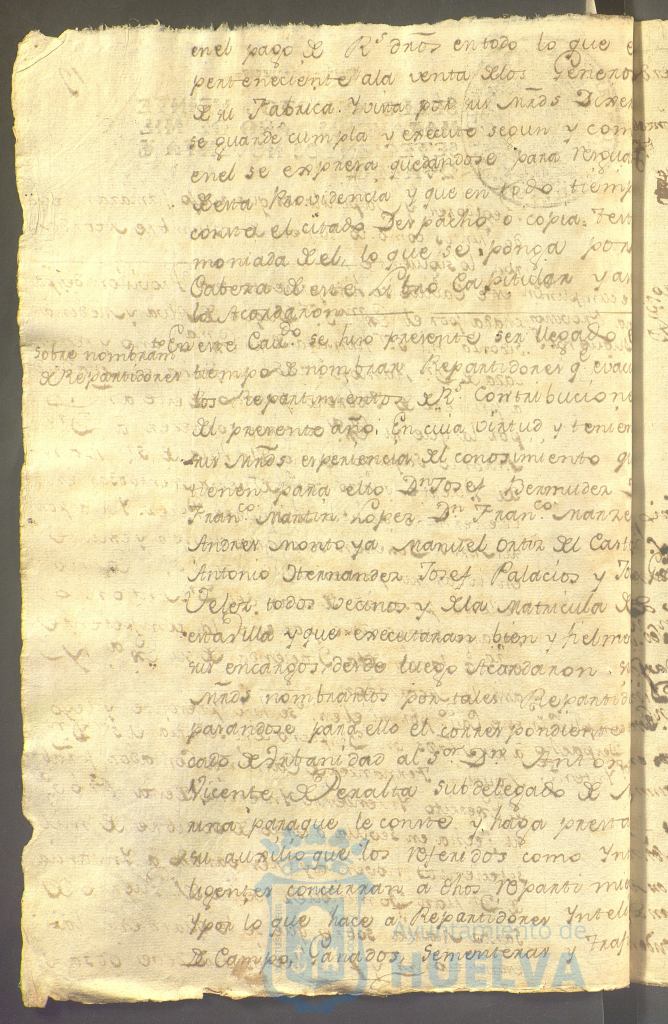 en el pago de R.s dr̃os en todo lo que
perteneciente ala venta delos Generos
de su Fabrica. Y vista por sus Mrz̃ds Dixer
se guarde cumpla y execute segun y com
en el se expresa quedandose para resguar
de esta Providencia y que en todo tiemp
conste el citado Despacho, ó copia. Testi
moniada de el, lo que se ponga por
Cabeza de este Libro Capitular y asi
lo Acordaron
Sobre nombram.to
de Repartidores
En este Cav.do se hizo presente ser llegado
tiempo de nombrar Repartidores q.e evacu
los Repartimientos de R.s Contribucione
del presente año. En cuia virtud y tenien
sus Mrz̃ds experiencia del conosimiento q
tienen para ello D.n Josef Bermudez
Fran.co Martin Lopez, D.n Fran.co
Andres Montoya Manuel Ortiz del Cast
Antonio Hernandez Josef Palacios y
Telez, todos vecinos y de la Matricula de
esta Villa y que executaran bien y fielm
sus encargos, desde luego Acordaron
Mrz̃ds nombrarlos por tales Repartid
pasandose para ello el correspondiente
cado de Urbanidad al S.or D.n Anton
Vicente de Peralta Subdelegado de
rina para que le conste y haga presta
su auxilio que los referidos como Ynt
ligentes concurran a dhos repartim
Y por lo que hace a Repartidores Yntel
de Campo, Ganados, Sementeras y
Ayuntamiento de
HUELVA